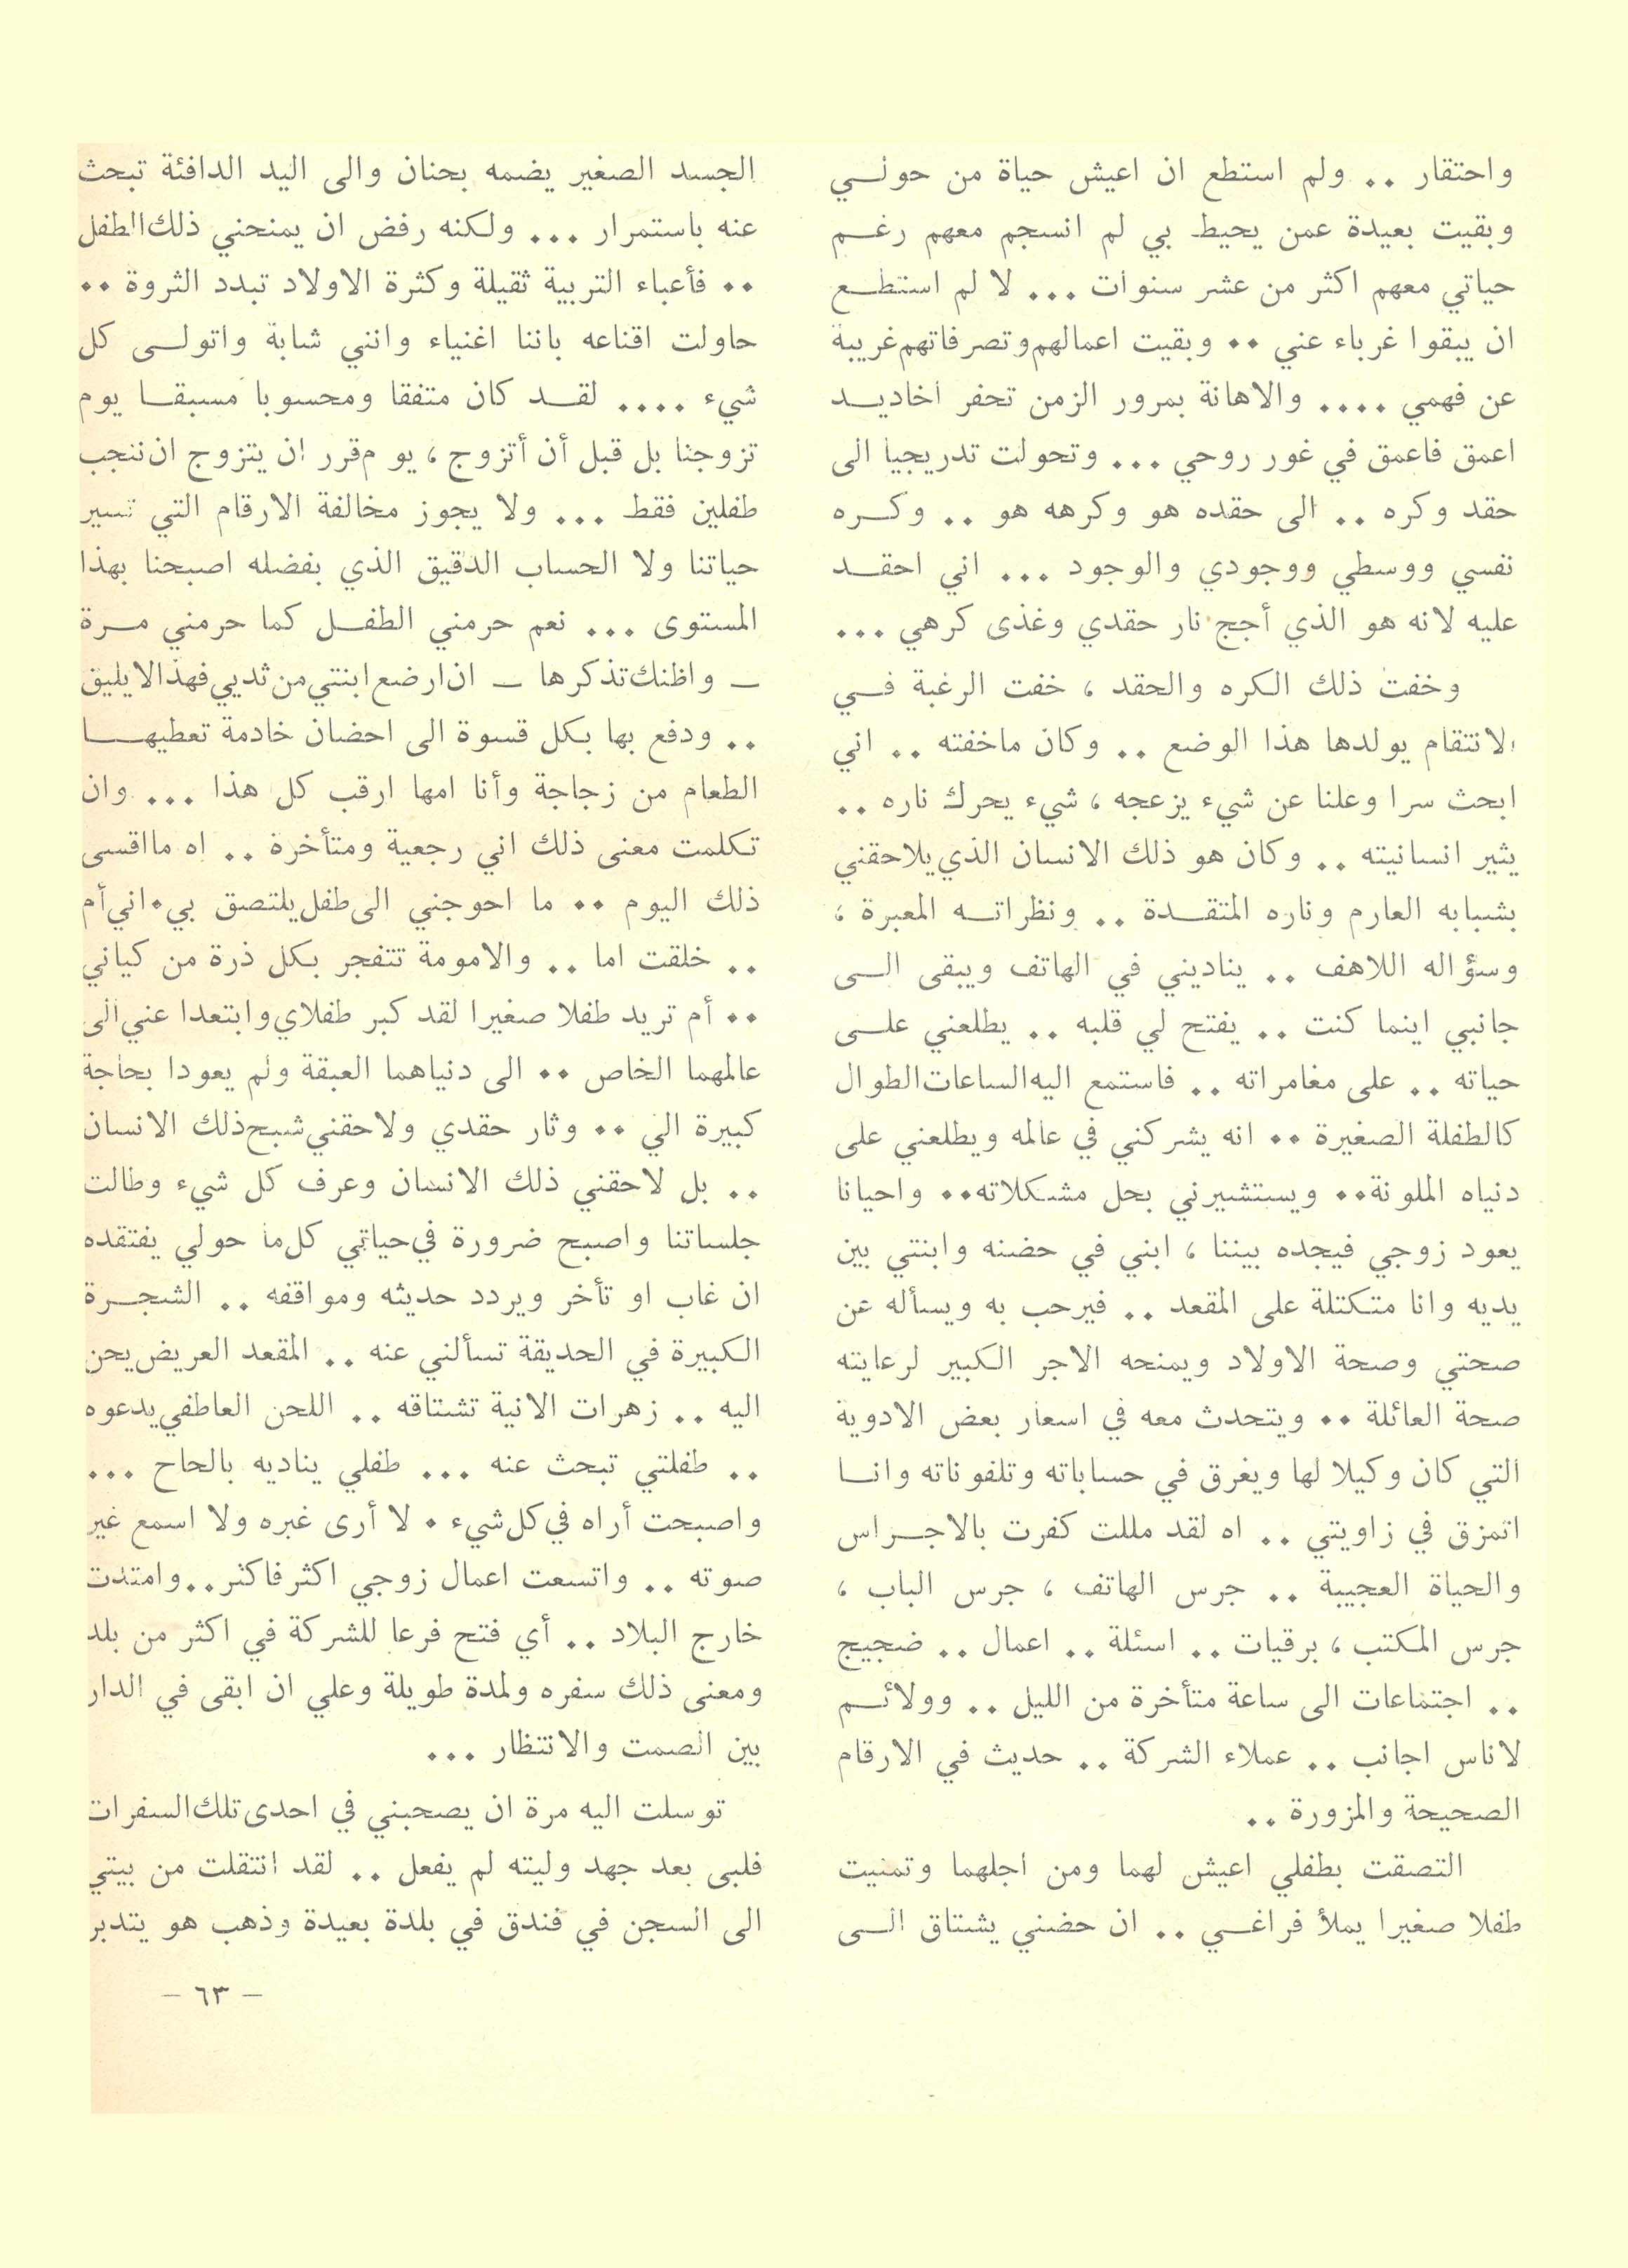 واحتقار .. ولم استطع ان اعيش حياة من حولي
وبقيت بعيدة عمن يحيط بي لم انسجم معهم رغم
حياتي معهم اكثر من عشر سنوات ... لا لم استطع
ان يبقوا غرباء عني .. وبقيت اعمالهم وتصرفاتهم غريبة
عن فهمي .... والاهانة بمرور الزمن تحفر اخاديد
اعمق فاعمق في غور روحي ... وتحولت تدريجيا الى
حقد وكره .. الى حقده هو وكرهه هو .. وكره
نفسي ووسطي ووجودي والوجود ... اني احقد
عليه لانه هو الذي أجج نار حقدي وغذى كرهي ...
وخفت ذلك الكره والحقد ، خفت الرغبة في
الانتقام يولدها هذا الوضع .. وكان ماخفته .. اني
ابحث سرا وعلنا عن شيء يزعجه ، شيء يحرك ناره ..
يثير انسانيته .. وكان هو ذلك الانسان الذي يلاحقني
بشبابه العارم وناره المتقدة .. ونظراته المعبرة ،
وسؤاله اللاهف .. يناديني في الهاتف ويبقى الى
جانبي اينما كنت .. يفتح لي قلبه .. يطلعني على
حياته .. على مغامراته .. فاستمع اليه الساعات الطوال
كالطفلة الصغيرة .. انه يشركني في عالمه ويطلعني على
دنياه الملونة.. ويستشيرني بحل مشكلاته.. واحيانا
يعود زوجي فيجده بيننا ، ابني في حضنه وابنتي بين
يديه وانا متكتلة على المقعد .. فيرحب به ويسأله عن
صحتي وصحة الاولاد ويمنحه الاجر الكبير لرعايته
صحة العائلة .. ويتحدث معه في اسعار بعض الادوية
التي كان وكيلا لها ويغرق في حساباته وتلفوناته وانا
اتمزق في زاويتي .. اه لقد مللت كفرت بالاجراس
والحياة العجيبة .. جرس الهاتف ، جرس الباب ،
جرس المكتب ، برقيات .. اسئلة .. اعمال .. ضجيج
.. اجتماعات الى ساعة متأخرة من الليل .. وولائم
لاناس اجانب .. عملاء الشركة .. حديث في الارقام
الصحيحة والمزورة ..
التصقت بطفلي اعيش لهما ومن اجلهما وتمنيت
طفلا صغيرا يملأ فراغي .. ان حضني يشتاق الى
الجسد الصغير يضمه بحنان والى اليد الدافئة تبحث
عنه باستمرار ... ولكنه رفض ان يمنحني ذلك الطفل
.. فأعباء التربية ثقيلة وكثرة الاولاد تبدد الثروة ..
حاولت اقناعه باننا اغنياء وانني شابة واتولى كل
شيء .... لقد كان متفقا ومحسوبا مسبقا يوم
تزوجنا بل قبل أن أتزوج ، يو م قرر ان يتزوج ان ننجب
طفلين فقط ... ولا يجوز مخالفة الارقام التي تسير
حياتنا ولا الحساب الدقيق الذي بفضله اصبحنا بهذا
المستوى ... نعم حرمني الطفل كما حرمني مرة
_ واظنك تذكرها _ ان ارضع ابنتي من ثديي فهذا لا يليق
.. ودفع بها بكل قسوة الى احضان خادمة تعطيها
الطعام من زجاجة وأنا امها ارقب كل هذا ... وان
تكلمت معنى ذلك اني رجعية ومتأخرة .. اه ما اقسى
ذلك اليوم .. ما احوجني الى طفل يلتصق بي . اني أم
.. خلقت اما .. والامومة تتفجر بكل ذرة من كياني
.. أم تريد طفلا صغيرا لقد كبر طفلاي وابتعدا عني الى
عالمهما الخاص .. الى دنياهما العبقة ولم يعودا بحاجة
كبيرة الي .. وثار حقدي ولاحقني شبح ذلك الانسان
.. بل لاحقني ذلك الانسان وعرف كل شيء وطالت
جلساتنا واصبح ضرورة في حياتي كل ما حولي يفتقده
ان غاب او تأخر ويردد حديثه ومواقفه .. الشجرة
الكبيرة في الحديقة تسألني عنه .. المقعد العريض يحن
اليه .. زهرات الانية تشتاقه .. اللحن العاطفي يدعوه
.. طفلتي تبحث عنه ... طفلي يناديه بالحاح ...
واصبحت أراه في كل شيء . لا أرى غيره ولا اسمع غير
صوته .. واتسعت اعمال زوجي اكثر فاكثر .. وامتدت
خارج البلاد .. أي فتح فرعا للشركة في اكثر من بلد
ومعنى ذلك سفره ولمدة طويلة وعلي ان ابقى في الدار
بين الصمت والانتظار ...
توسلت اليه مرة ان يصحبني في احدى تلك السفرات
فلبى بعد جهد وليته لم يفعل .. لقد انتقلت من بيتي
الى السجن في فندق في بلدة بعيدة وذهب هو يتدبر
- ٦٣ -